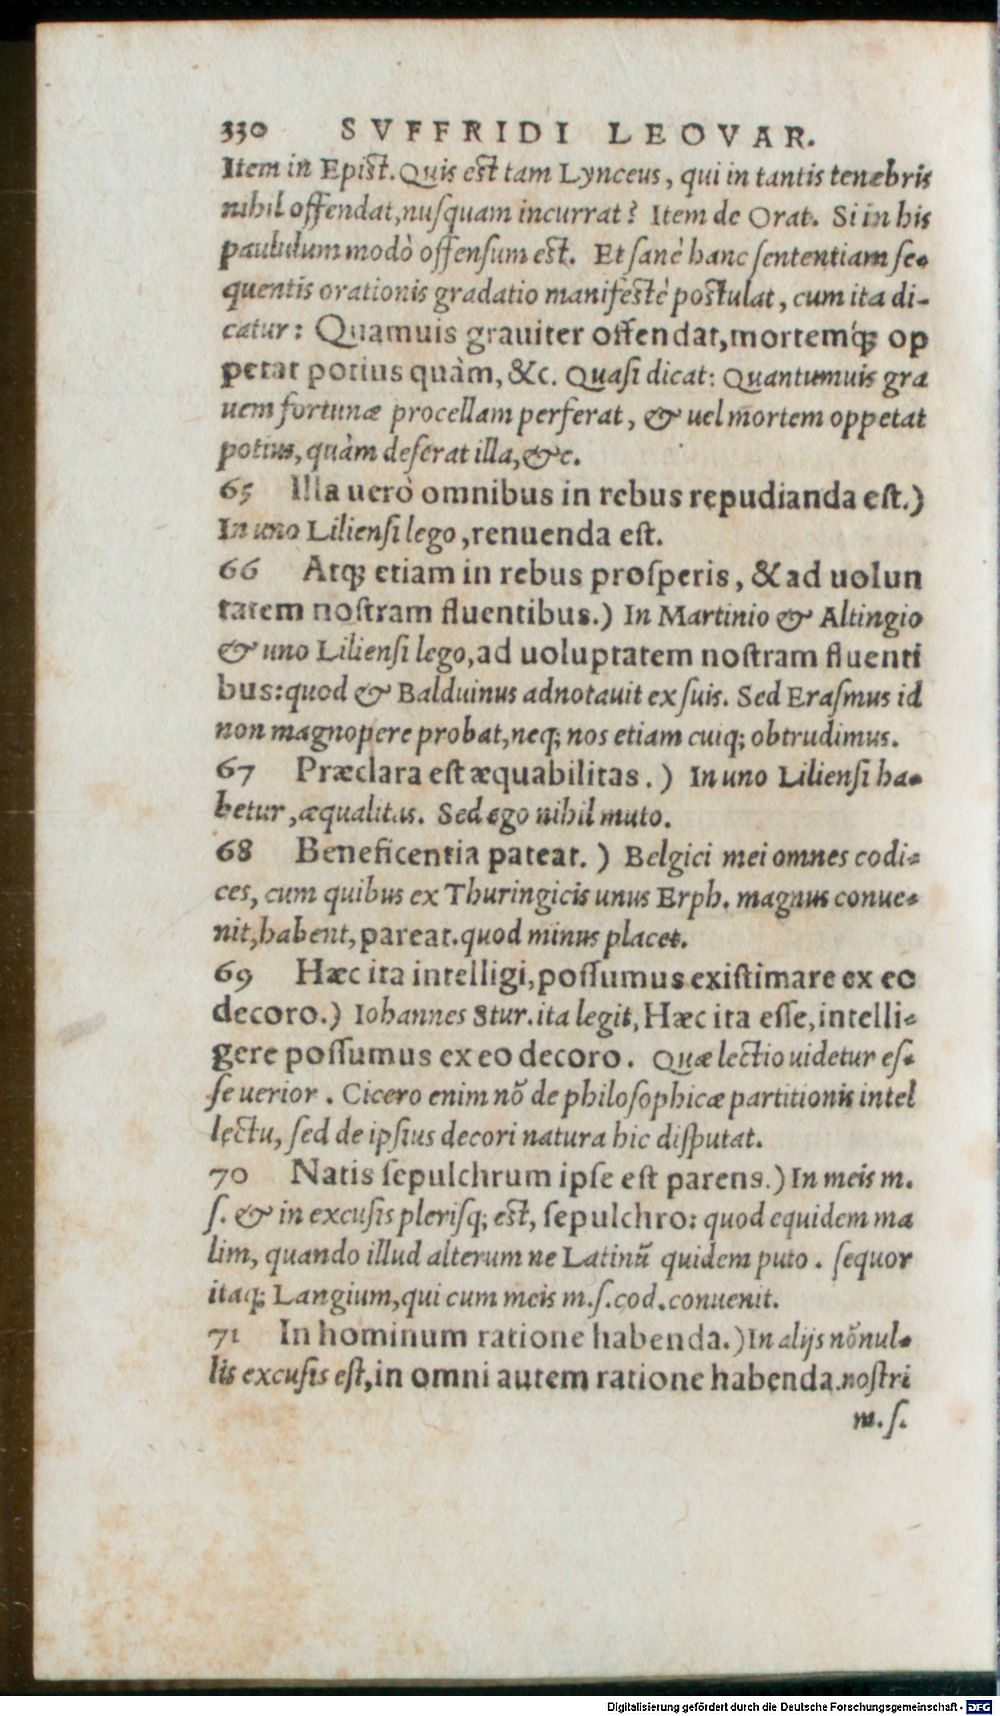 330 SVFFRIDI LEOVAR.
Item in Epist. Quis est tam Lynceus, qui in tantis tenebris
nihil offendat, nusquam incurrat? Item de Orat. Si in his
paululum modò offensum est. Et sanè hanc sententiam se-
quentis orationis gradatio manifestè postulat, cum ita di-
catur: Quamuis grauiter offendat, mortemq́; op
petat potius quàm, &c. Quasi dicat: Quantumuis gra
uem fortunæ procellam perferat, & uel mortem oppetat
potius, quàm deserat illa, &c.
65 Illa uerò omnibus in rebus repudianda est.)
In uno Liliensi lego, renuenda est.
66 Atq; etiam in rebus prosperis, & ad uolun
tatem nostram fluentibus.) In Martinio & Altingio
& uno Liliensi lego, ad uoluptatem nostram fluenti
bus: quod & Balduinus adnotauit ex suis. Sed Erasmus id
non magnopere probat, neq; nos etiam cuiq; obtrudimus.
67 Præclara est æquabilitas.) In uno Liliensi ha-
betur, æqualitas. Sed ego nihil muto.
68 Beneficentia pateat.) Belgici mei omnes codi-
ces, cum quibus ex Thuringicis unus Erph. magnus conue-
nit, habent, pareat. quod minus placet.
69 Hæc ita intelligi, possumus existimare ex eo
decoro.) Iohannes Stur. ita legit, Hæc ita esse, intelli-
gere possumus ex eo decoro. Quæ lectio uidetur es-
se uerior. Cicero enim nõ de philosophicæ partitionis intel
lectu, sed de ipsius decori natura hic disputat.
70 Natis sepulchrum ipse est parens.) In meis m.
s. & in excusis plerisq; est, sepulchro: quod equidem ma
lim, quando illud alterum ne Latinũ quidem puto. sequor
itaq; Langium, qui cum meis m.s. cod. conuenit.
71 In hominum ratione habenda.) In alijs nõnul-
lis excusis est, in omni autem ratione habenda. nostri
m.s.
Digitalisierung gefördert durch die Deutsche Forschungsgemeinschaft - DFG